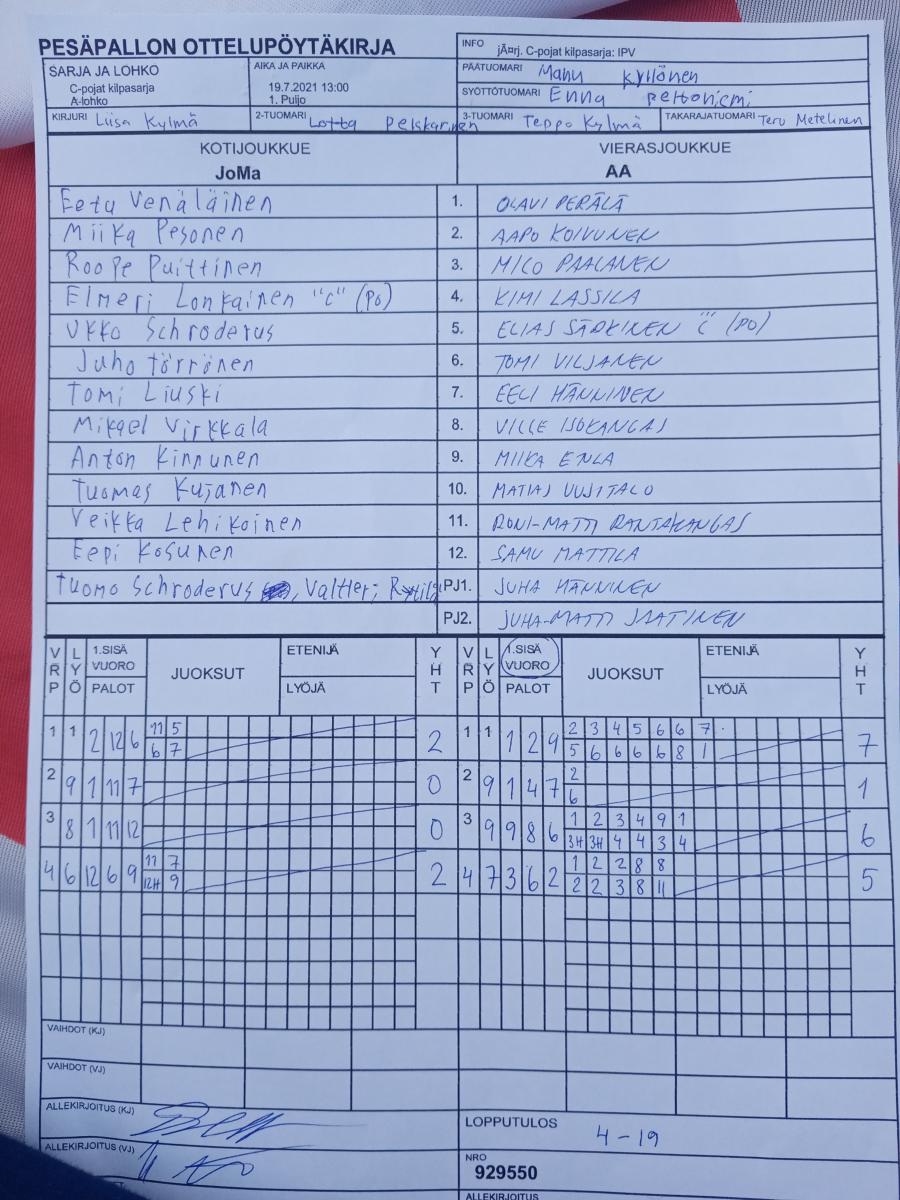 PESÄPALLON OTTELUPÖYTÄKIRJA
INFO jÃ¤rj. C-pojat kilpasarja: IPV
SARJA JA LOHKO
C-pojat kilpasarja
A-lohko
AIKA JA PAIKKA
19.7.2021 13:00
1. Puijo
PÄÄTUOMARI Manu Kyllönen
SYÖTTÖTUOMARI Enna Peltoniemi
KIRJURI Liisa Kylmä
2-TUOMARI Lotta Pelskarinen
3-TUOMARI Teppo Kylmä
TAKARAJATUOMARI Teru Metelinen
KOTIJOUKKUE VIERASJOUKKUE
JoMa AA
Eetu Venäläinen 1. OLAVI PERÄLÄ
Miika Pesonen 2. AAPO KOIVUNEN
Roope Puittinen 3. MICO PAALANEN
Elmeri Lonkainen "C" (PO) 4. KIMI LASSILA
Ukko Schroderus 5. ELIAS SÄRKINEN "C" (PO)
Juho Törrönen 6. TOMI VILJANEN
Tomi Liuski 7. EELI HÄNNINEN
Mikael Virkkala 8. VILLE ISOKANGAS
Anton Kinnunen 9. MIIKA ENLA
Tuomas Kujanen 10. MATIAS UUSITALO
Veikka Lehikoinen 11. RONI-MATTI RANTAKANGAS
Eepi Kosunen 12. SAMU MATTILA
Tuomo Schroderus , Valtteri PJ1. JUHA HÄNNINEN
PJ2. JUHA-MATTI JAATINEN
VRP LYÖ 1.SISÄ VUORO PALOT JUOKSUT ETENIJÄ LYÖJÄ YHT VRP LYÖ 1.SISÄ VUORO PALOT JUOKSUT ETENIJÄ LYÖJÄ YHT
11 5 2 3 4 5 6 6 7
1 1 2 12 6 2 1 1 1 2 9 7
6 7 5 6 6 6 6 8 1
2
2 9 1 11 7 0 2 9 1 4 7 1
6
1 2 3 4 9 1
3 8 1 11 12 0 3 9 9 8 6 6
3H 3H 4 4 3 4
11 7 1 2 2 8 8
4 6 12 6 9 2 4 7 3 6 2 5
12H 9 2 2 3 8 11
VAIHDOT (KJ)
VAIHDOT (VJ)
ALLEKIRJOITUS (KJ)
LOPPUTULOS 4 - 19
ALLEKIRJOITUS (VJ)
NRO
929550
ALLEKIRJOITUS